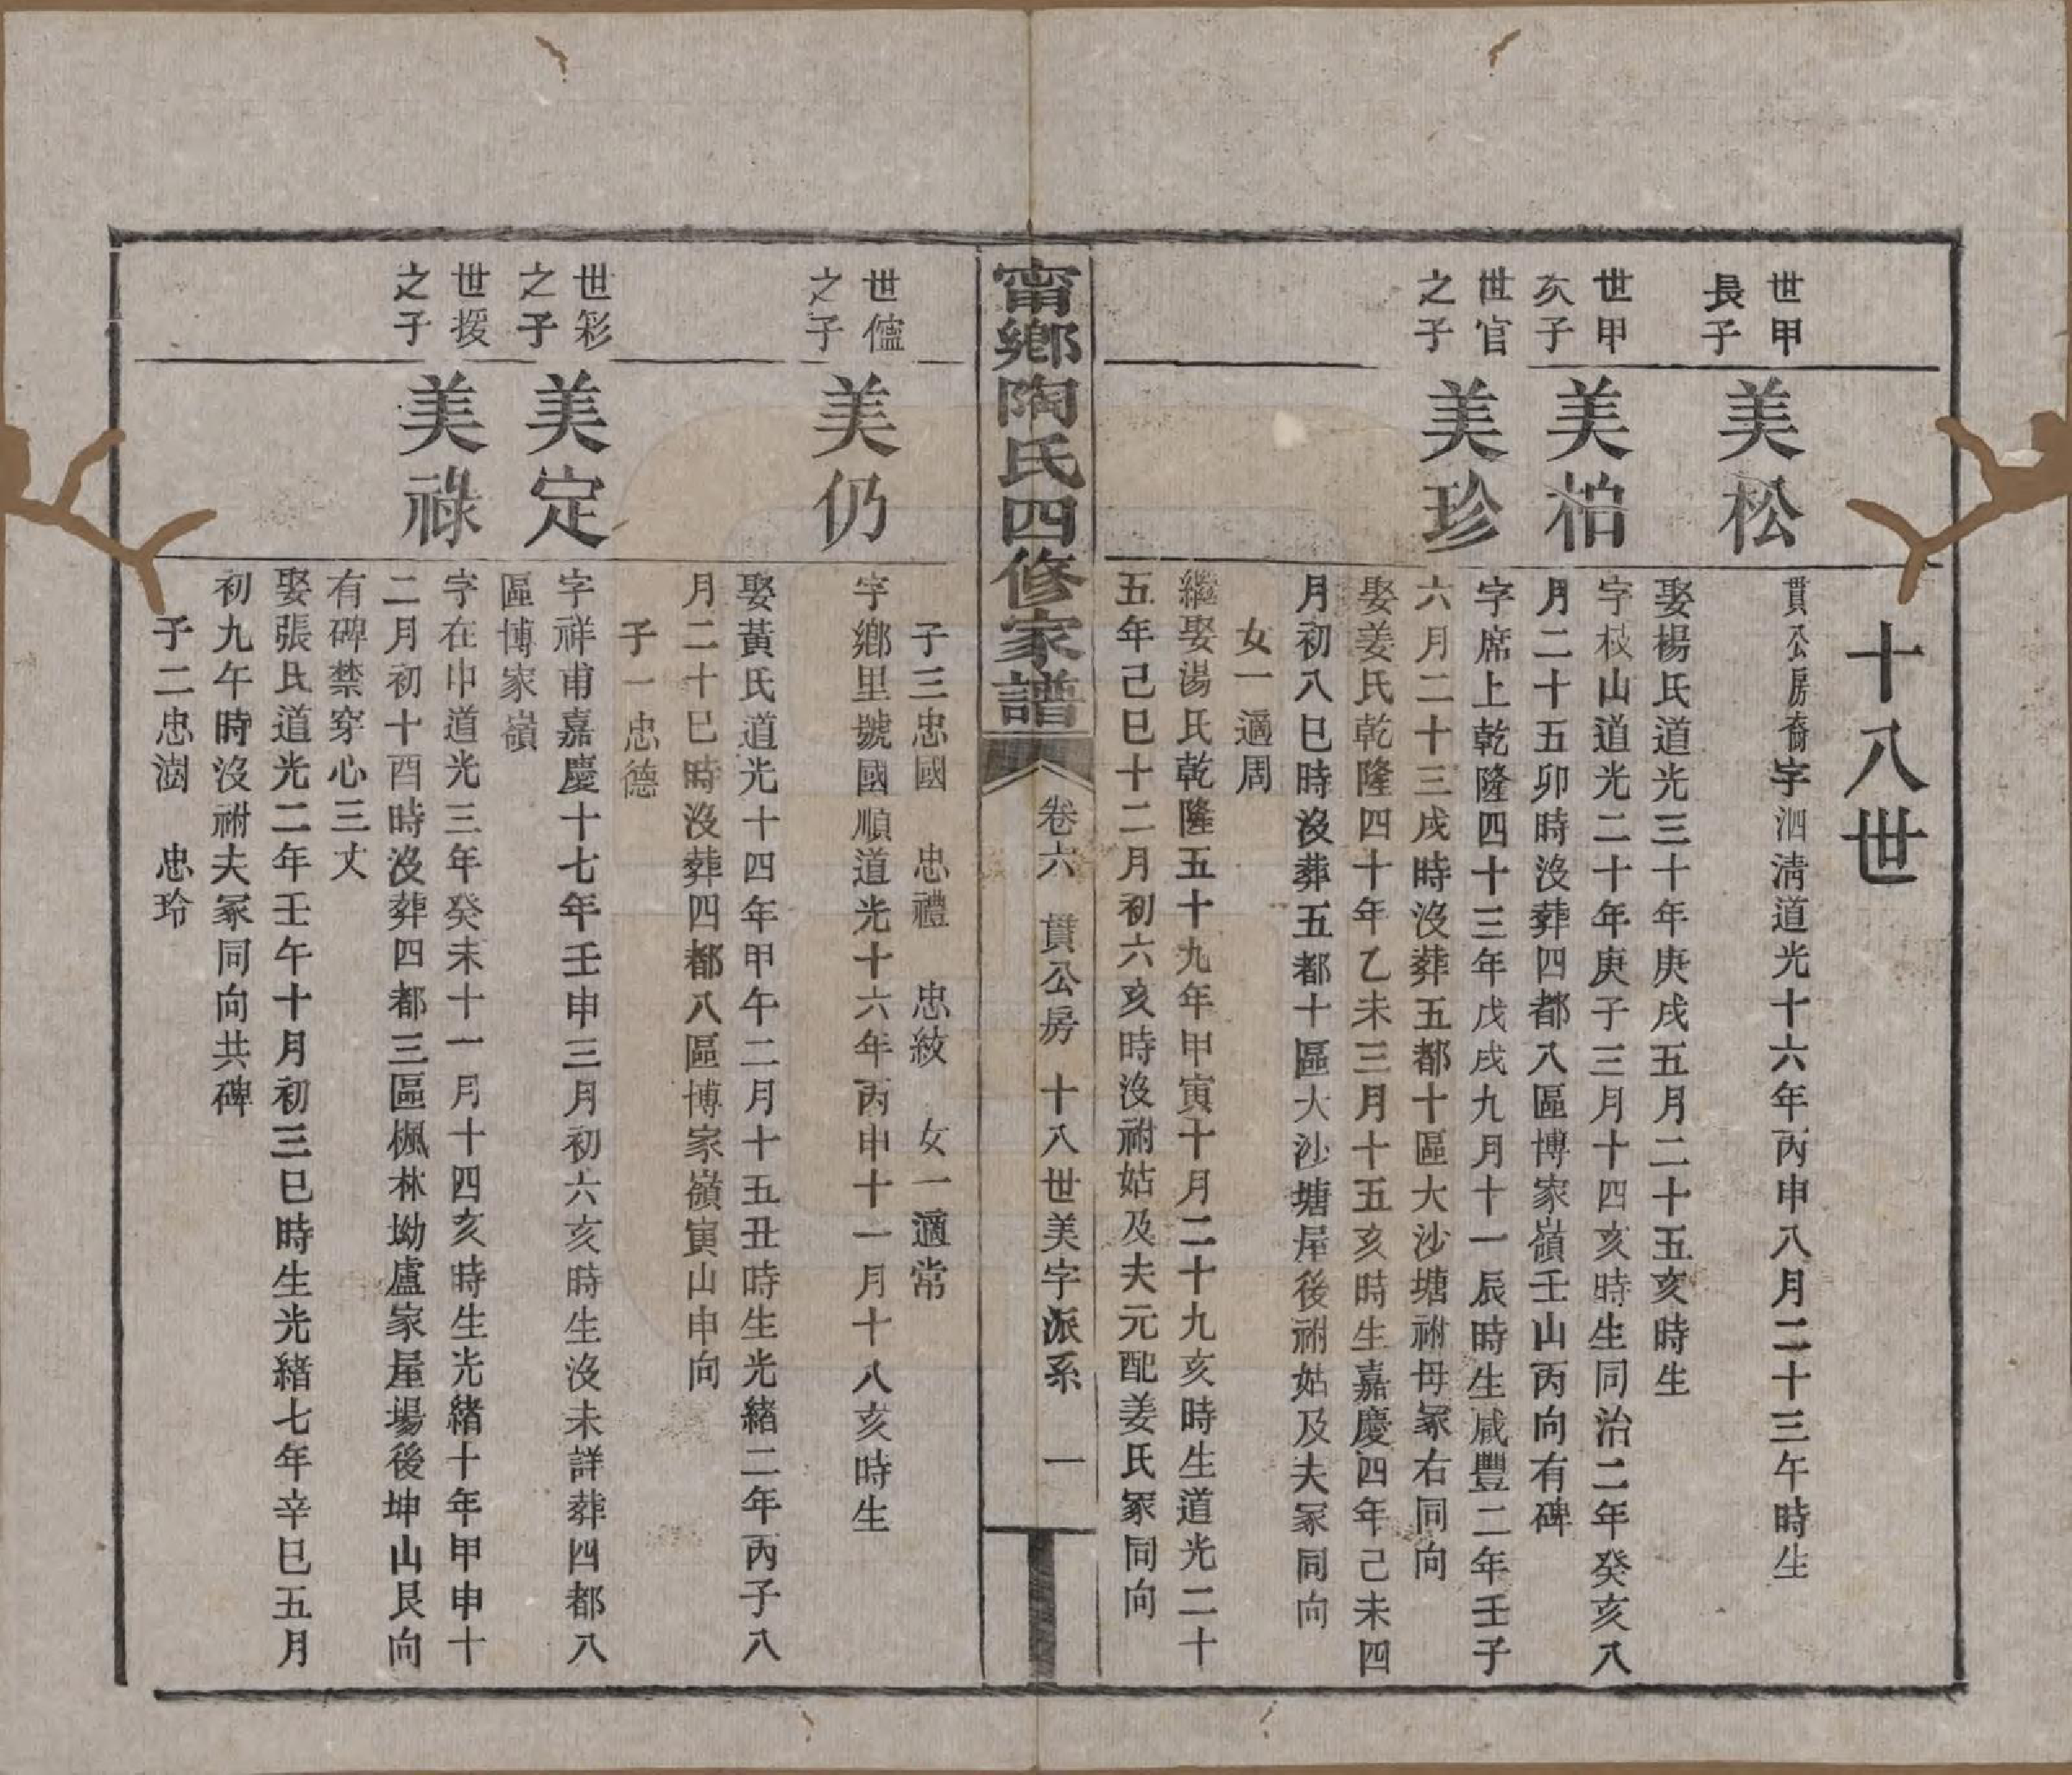 十八世
世甲
長子
美松
貫公房裔字泗淸道光十六年丙申八月二十三午時生
娶楊氏道光三十年庚戌五月二十五亥時生
世甲
次子
美柏
字枝山道光二十年庚子三月十四亥時生同治二年癸亥八
月二十五卯時沒葬四都八區博家嶺壬山丙向有碑
世官
之子
美珍
字席上乾隆四十三年戊戌九月十一辰時生咸豐二年壬子
六月二十三戌時沒葬五都十區大沙塘祔母冢右同向
娶姜氏乾隆四十年乙未三月十五亥時生嘉慶四年己未四
月初八巳時沒葬五都十區大沙塘屋後祔姑及夫冢同向
女一適周
繼娶湯氏乾隆五十九年甲寅十月二十九亥時生道光二十
五年己巳十二月初六亥時沒祔姑及夫元配姜氏冢同向
甯鄉陶氏四修家譜
卷六 貫公房 十八世美字派系 一
子三忠國 忠禮 忠紋 女一適常
世儘
之子
美仍
字鄉里號國順道光十六年丙申十一月十八亥時生
娶黃氏道光十四年甲午二月十五丑時生光緒二年丙子八
月二十巳時沒葬四都八區博家嶺寅山申向
子一忠德
世彩
之子
美定
字祥甫嘉慶十七年壬申三月初六亥時生沒未詳葬四都八
區博家嶺
世援
之子
美祿
字在中道光三年癸未十一月十四亥時生光緒十年甲申十
二月初十酉時沒葬四都三區楓林坳盧家屋場後坤山艮向
有碑禁穿心三丈
娶張氏道光二年壬午十月初三巳時生光緒七年辛巳五月
初九午時沒祔夫冢同向共碑
子二忠澍 忠玲